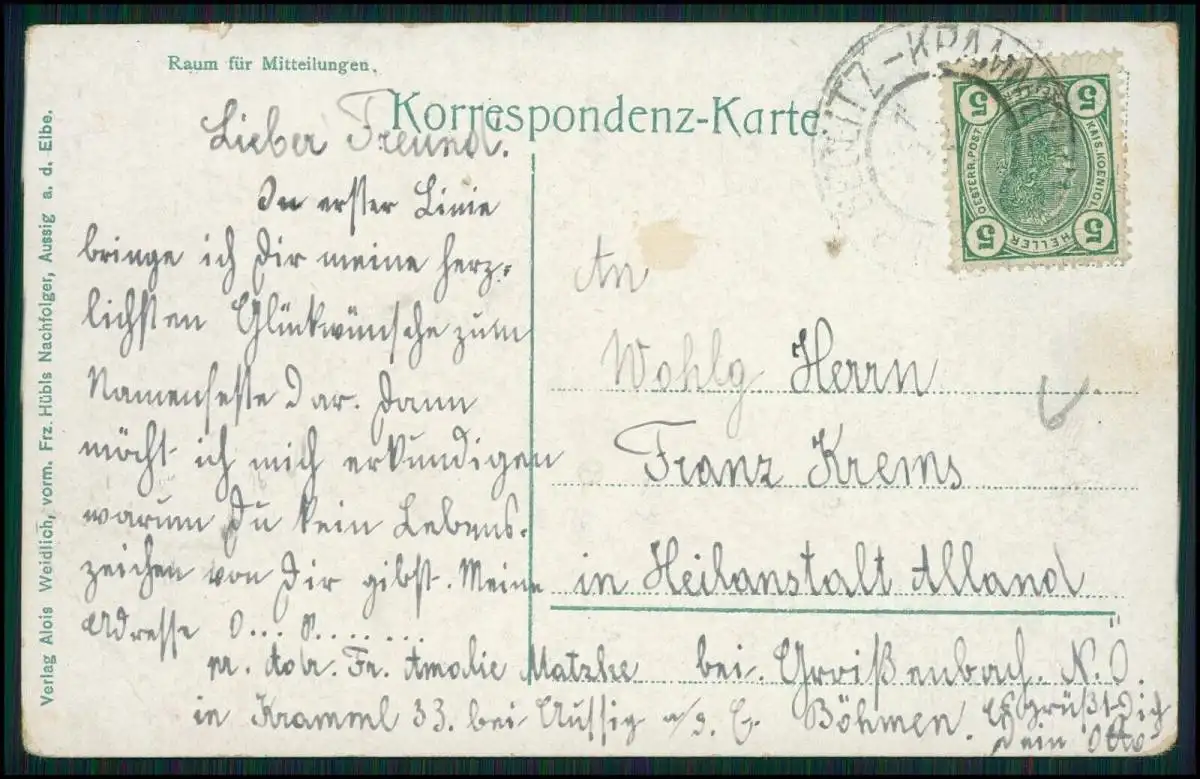 Raum für Mitteilungen.
Korrespondenz-Karte.
Verlag Alois Weidlich, vorm. Frz. Hübls Nachfolger, Aussig a. d. Elbe.
5 5 5 5
OESTERR. POST. KAIS. KOENIGL.
HELLER
Lieber Freund.
In erster Linie
bringe ich Dir meine herz-
lichsten Glückwünsche zum
Namensfeste dar. Dann
möcht ich mich erkundigen
warum Du kein Lebens-
zeichen von Dir gibst. Meine
Adresse O... P.......
pr. Adr. Fr. Amalie Matzke
in Kramml 33. bei Aussig a/d. E. Böhmen.
Es grüßt Dich
Dein Otto
An
Wohlg Herrn
Franz Krems
in Heilanstalt Alland
bei. Groißenbach. N.Ö.